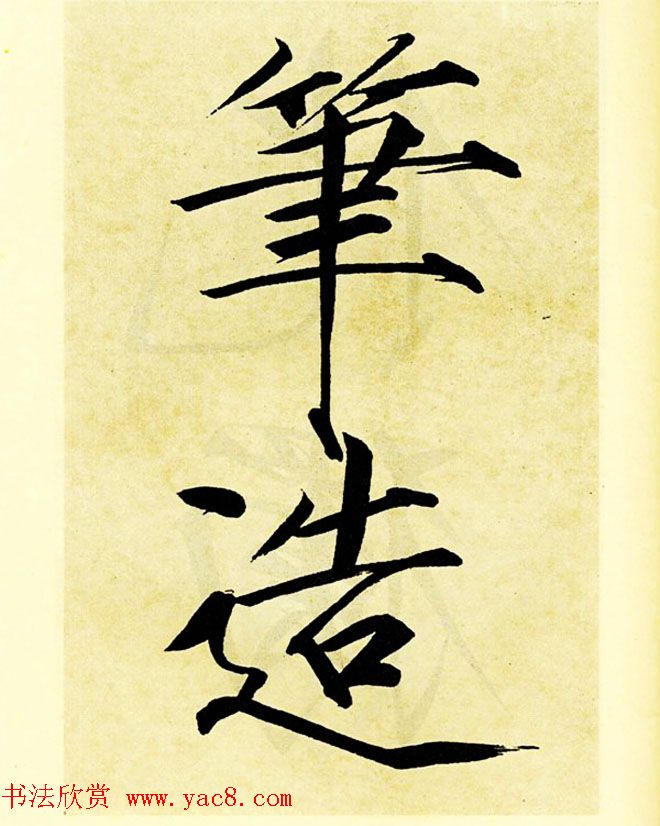 筆
造
书法欣赏 www.yac8.com